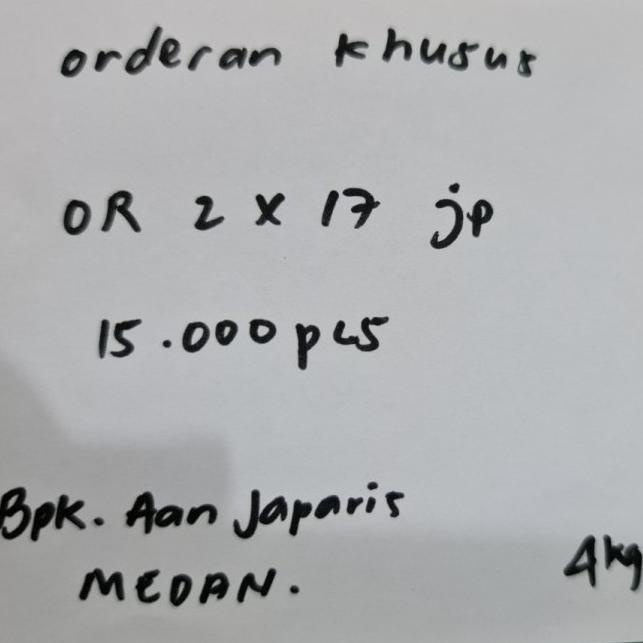 orderan khusus
OR 2 x 17 jp
15.000 pcs
Bpk. Aan Japaris
MEDAN.
4kg